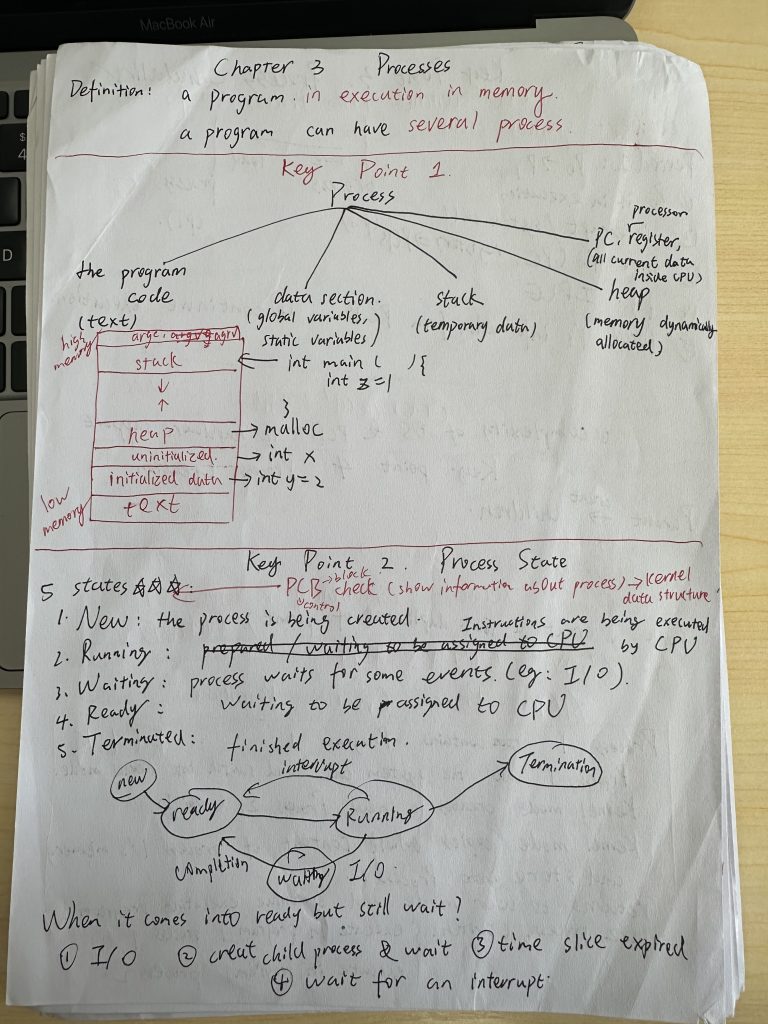 MacBook Air
Chapter 3 Processes
Definition: a program in execution in memory.
a program can have several process.
Key Point 1.
Process
processor
PC, register,
(all current data
inside CPU)
the program
code
(text)
data section.
(global variables,
static variables)
stack
(temporary data)
heap
(memory dynamically
allocated)
high
memory
argc, agrv
stack
int main ( ) {
int z=1
}
heap → malloc
uninitialized. → int x
initialized data → int y=2
low
memory
text
Key Point 2. Process State
5 states ☆☆☆ PCB → block check (show information about process) → kernel
control
data structure
1. New: the process is being created. Instructions are being executed
2. Running: prepared / waiting to be assigned to CPU by CPU
3. Waiting: process waits for some events. (eg: I/O).
4. Ready: waiting to be assigned to CPU
5. Terminated: finished execution.
interrupt
Termination
new
ready
Running
completion
waiting
I/O.
When it comes into ready but still wait?
① I/O ② creat child process & wait ③ time slice expired
④ wait for an interrupt.